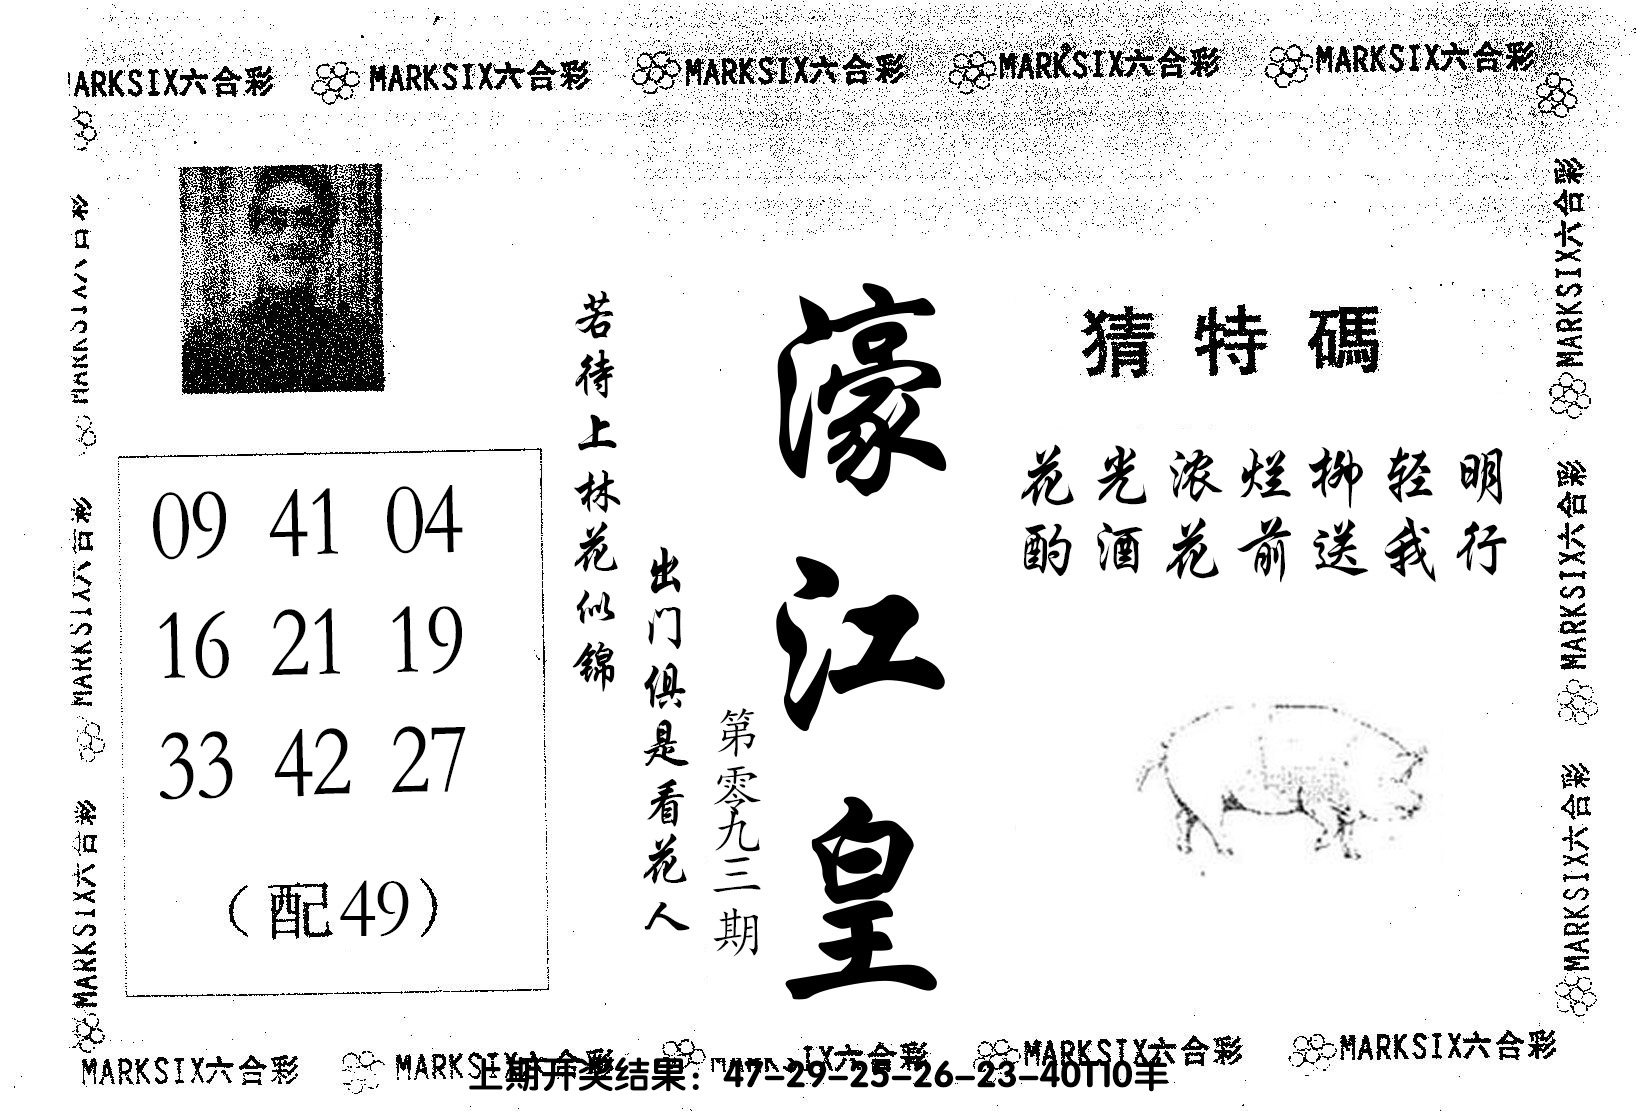 MARKSIX六合彩 MARKSIX六合彩 MARKSIX六合彩 MARKSIX六合彩
MARKSIX六合彩
猜特碼
花光浓烂柳轻明
酌酒花前送我行
濠江皇
第零九三期
若待上林花似锦
出门俱是看花人
09 41 04
16 21 19
33 42 27
（配49）
MARKSIX六合彩
MARKSIX六合彩
MARKSIX六合彩
MARKSIX六合彩
MARKSIX六合彩
MARKSIX六合彩
MARKSIX六合彩 MARKSIX六合彩 MARKSIX六合彩 MARKSIX六合彩
上期开奖结果：47-29-25-26-23-40T10羊